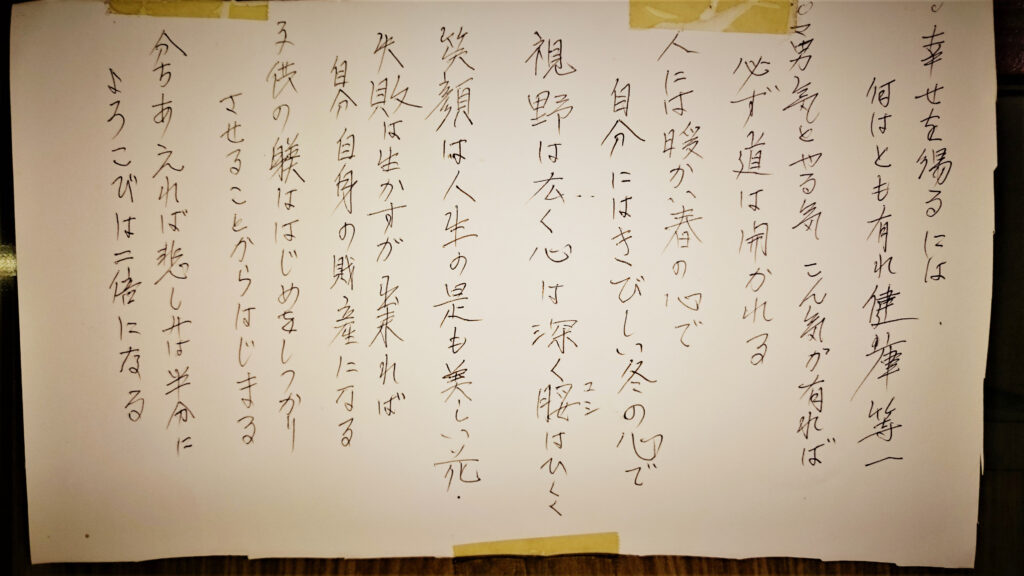 ○幸せを得るには
何はとも有れ健庫等一
○男気とやる気こん気が有れば
必ず道は開かれる
人には暖かい春の心で
自分にはきびしい冬の心で
視野は広く心は深く腰はひくく
コシ
笑顔は人生の最も美しい花.
失敗は生かすが出来れば
自分自身の財産になる
子供の躾ははじめをしっかり
させることからはじまる
分ちあえれば悲しみは半分に
よろこびは二倍になる